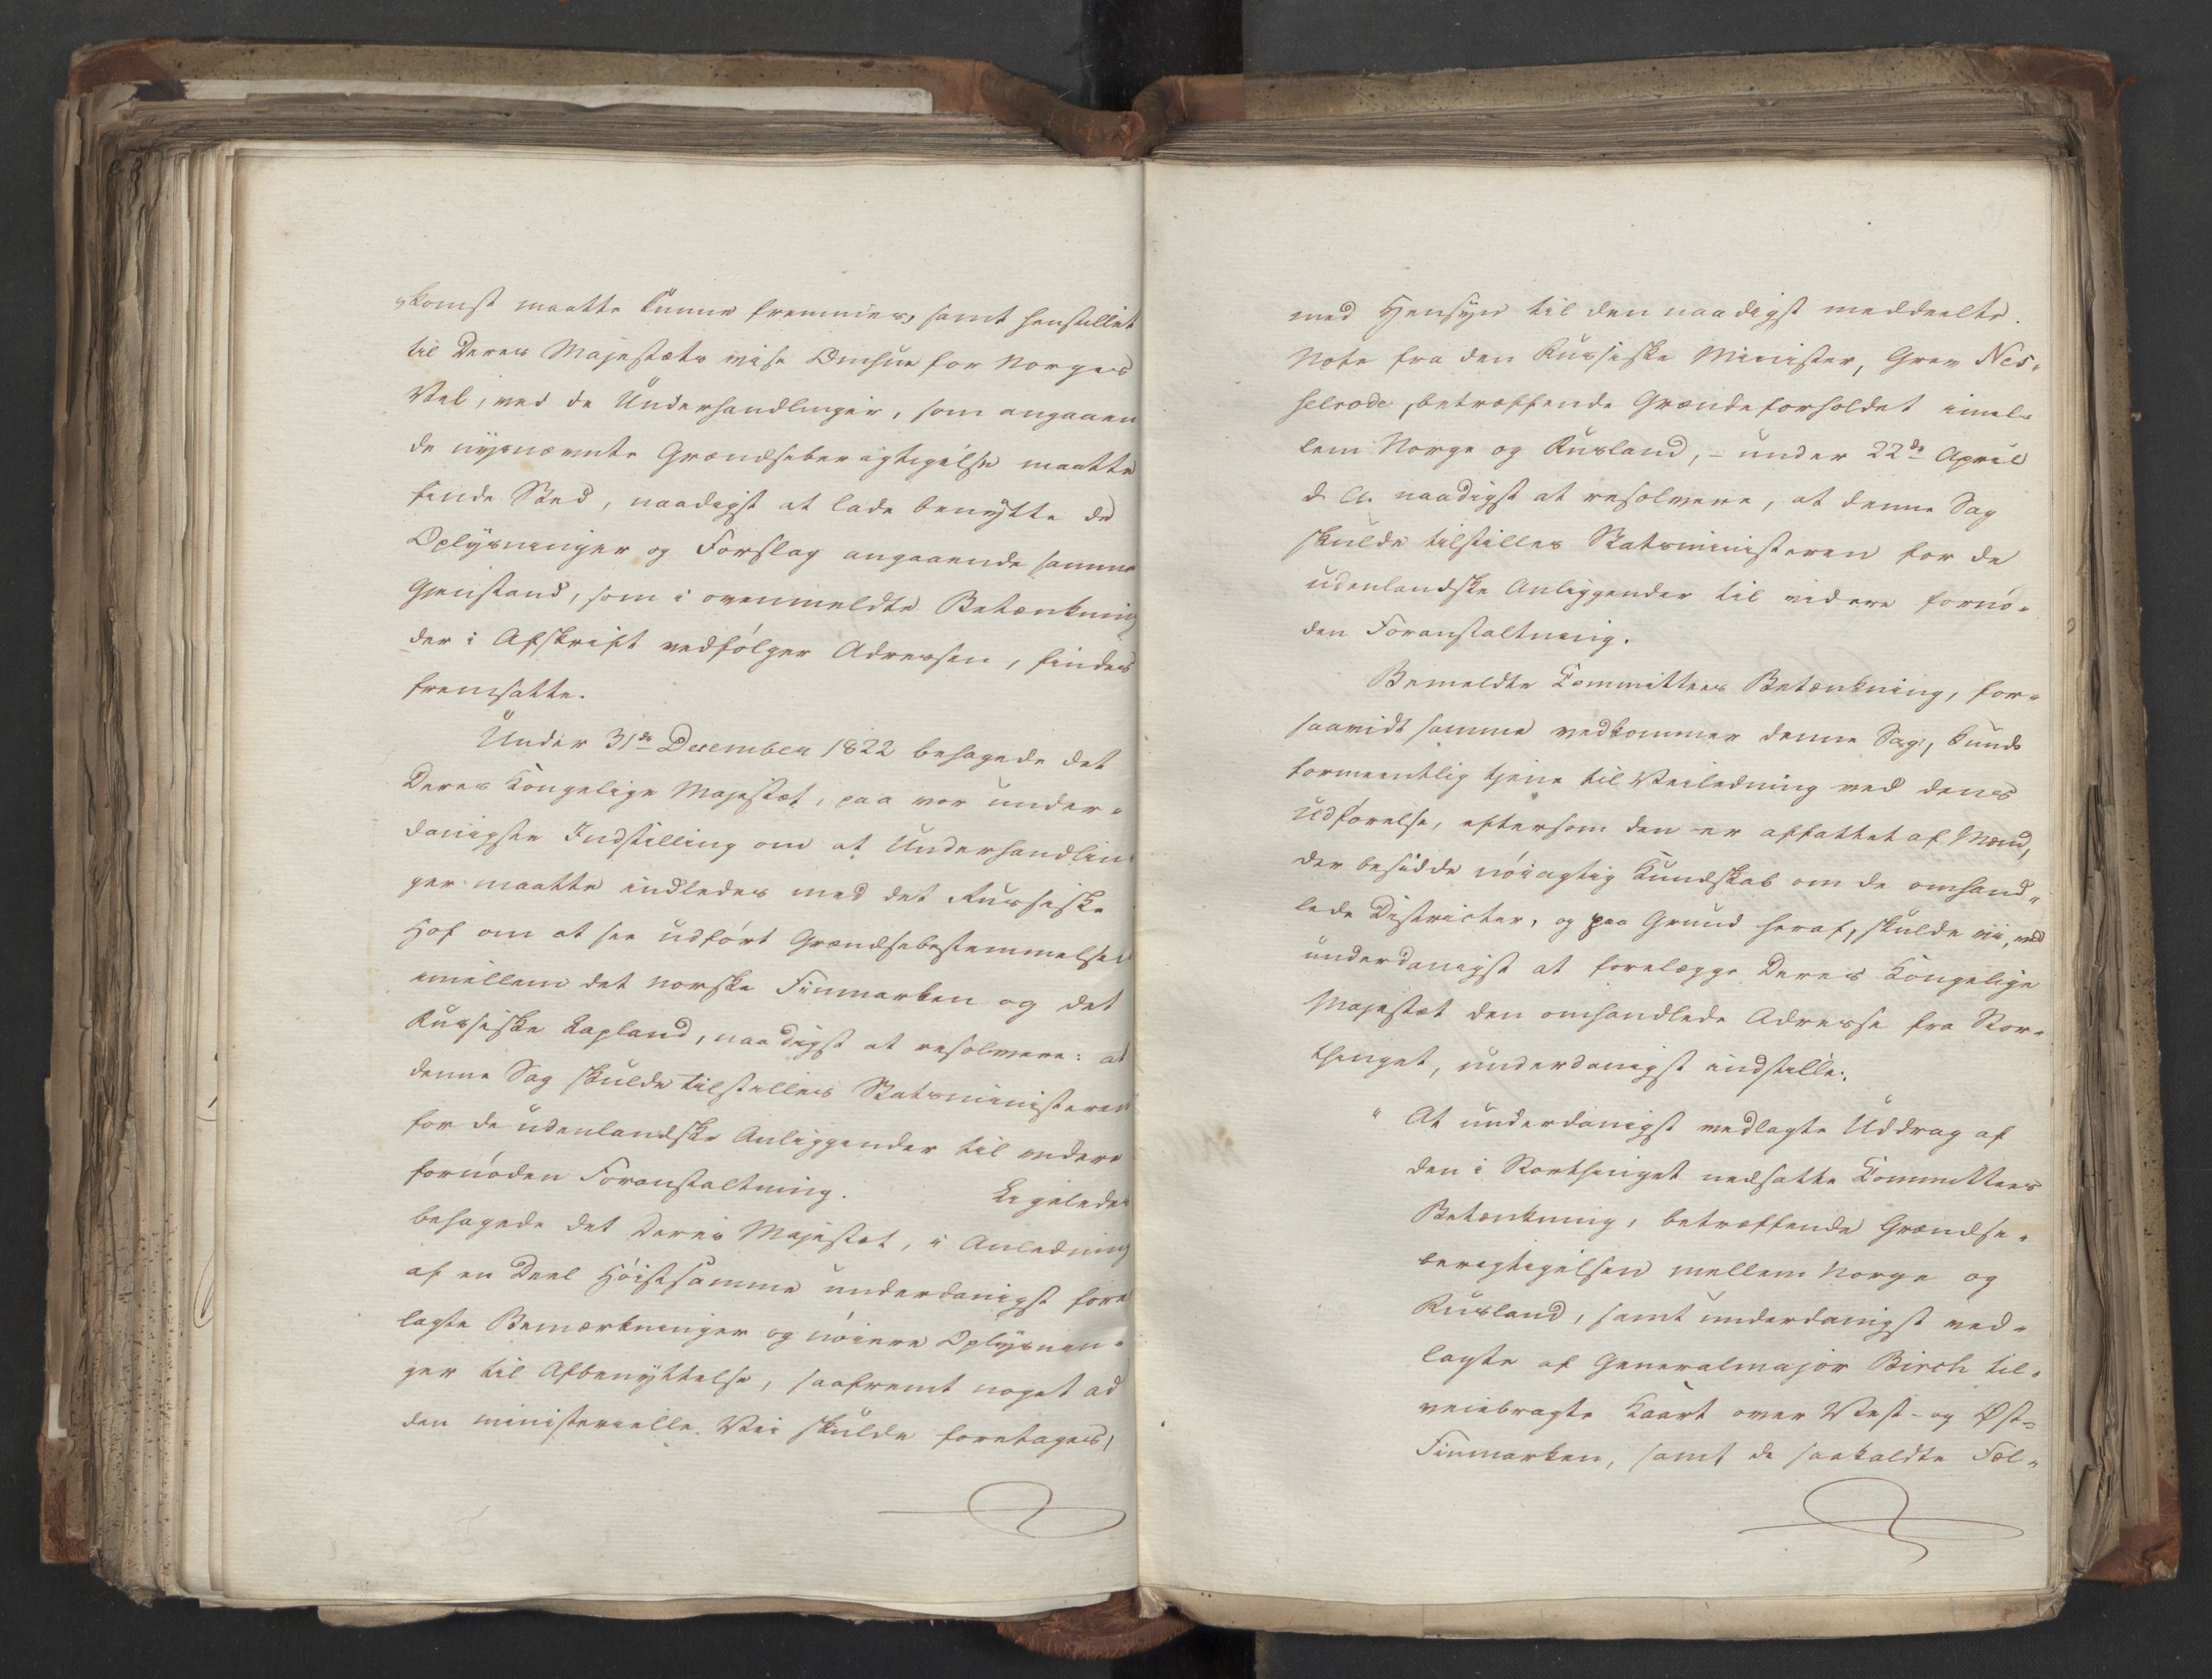 „komst maatte kunne fremmes, samt henstillet
til Deres Majestæts vise Omhue for Norges
Vel, ved de Underhandlinger, som angaaen
de nysnævnte Grændseberigtigelse maatte
finde Sted, naadigst at lade benytte de
Oplysninger og Forslag angaaende samme
Gjenstand, som i ovenmeldte Betænkning
der i Afskrift vedfølger Adressen, findes
fremsatte.
Under 31de December 1822 behagede det
Deres Kongelige Majestæt, paa vor under-
danigste Indstilling om at Underhandlin-
ger maatte indledes med det Russiske
Hof om at see udført Grændsebestemmelsen
imellem det norske Finmarken og det
Russiske Lapland, naadigst at resolvere: at
denne Sag skulde tilstilles Statsministeren
for de udenlandske Anliggender til videre
fornøden Foranstaltning. Ligeledes
behagede det Deres Majestæt, i Anledning
af en Deel Høistsamme underdanigst fore
lagte Bemærkninger og nøiere Oplysnin-
ger til Afbenyttelse, saafremt noget ad
den ministerielle Vei skulde foretages,
med Hensyn til den naadigst meddeelte
Note fra den Russiske Minister, Grev Nes-
selrode, betræffende Grændseforholdet imel-
lem Norge og Rusland, - under 22de April
d. A. naadigst at resolvere, at denne Sag
skulde tilstilles Statsministeren for de
udenlandske Anliggender til videre fornø-
den Foranstaltning.
Bemeldte Committees Betænkning, for-
saavidt samme vedkommer denne Sag, kunde
formeentlig tjene til Veiledning ved dens
Udførelse, eftersom den er affattet af Mænd,
der besidde nøiagtig Kundskab om de omhand-
lede Districter, og paa Grund heraf, skulde vi, ved
underdanigst at forelægge Deres Kongelige
Majestæt den omhandlede Adresse fra Stor-
thinget, underdanigst indstille:
" At underdanigst vedlagte Uddrag af
den i Storthinget nedsatte Committees
Betænkning, betræffende Grændse-
berigtigelsen mellem Norge og
Rusland, samt underdanigst ved-
lagte af Generalmajor Birch til-
veiebragte Kaart over Vest- og Øst-
Finmarken, samt de saakaldte Fæl-